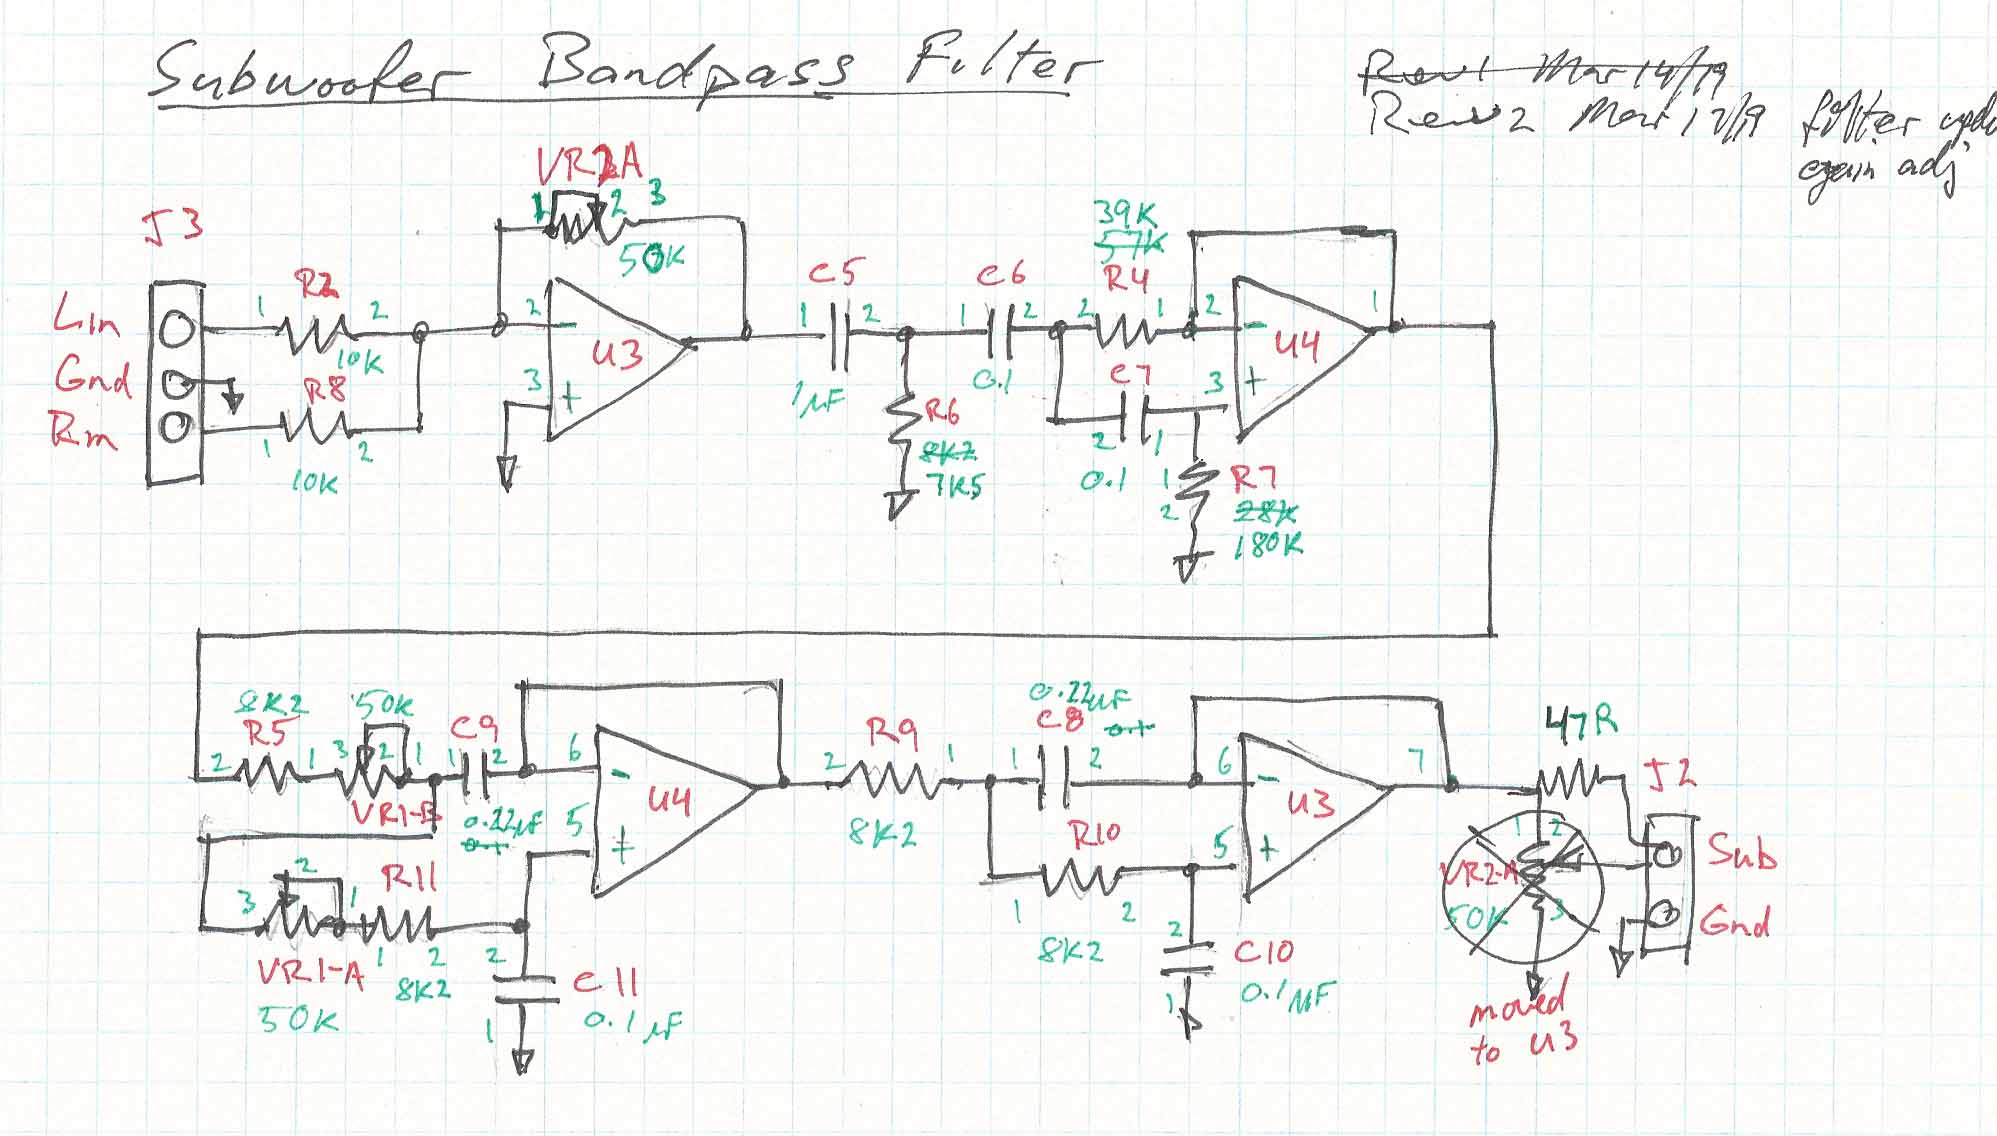 Subwoofer Bandpass Filter
Rev1 Mar 14/19
Rev2 Mar 17/19 filter
gain adj
VR2A
1 2 3
50K
J3
Lin
Gnd
Rin
1 R2 2
10K
R8
1 2
10K
2
3
U3
C5
1 2
1µF
R6
8K2
7K5
C6
1 2
0.1
39K
57K
R4
2 1
C7
2 1
0.1
R7
1
2
28K
180K
2
3
U4
1
8K2
R5
2 1
50K
3 2 1
VR1-B
C9
1 2
0.22µF
0.1
6
5
U4
3 2 1
VR1-A
50K
R11
1 2
8K2
2
1
C11
0.1µF
R9
2 1
8K2
0.22µF
C8
0.1
1 2
R10
1 2
8K2
6
5
U3
7
2
1
C10
0.1µF
47R
J2
Sub
Gnd
1 2
VR2-A
50K
3
moved
to U3